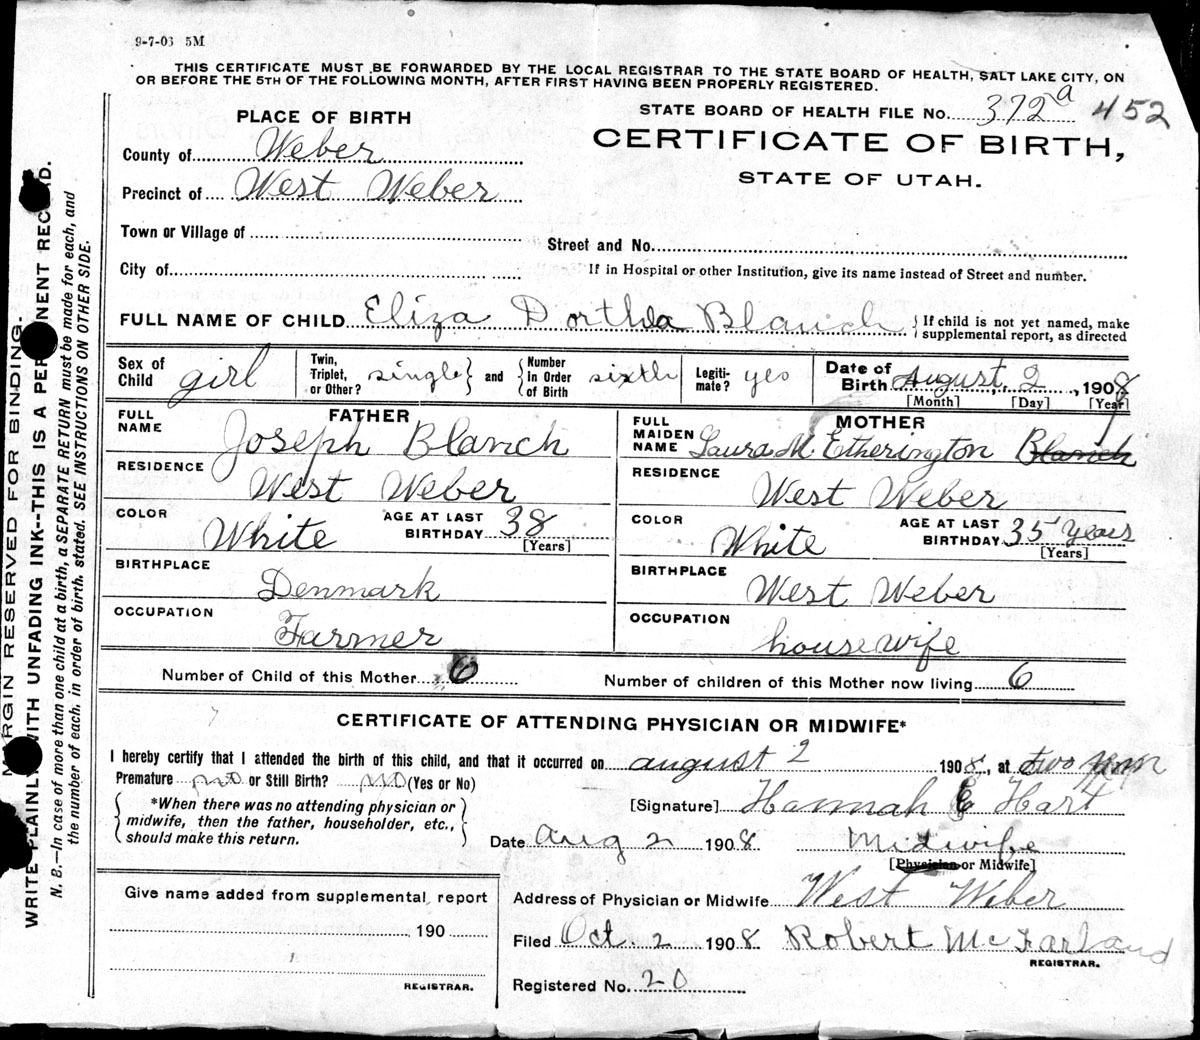 9-7-03 5M
THIS CERTIFICATE MUST BE FORWARDED BY THE LOCAL REGISTRAR TO THE STATE BOARD OF HEALTH, SALT LAKE CITY, ON
OR BEFORE THE 5TH OF THE FOLLOWING MONTH, AFTER FIRST HAVING BEEN PROPERLY REGISTERED.
STATE BOARD OF HEALTH FILE No. 372a 452
PLACE OF BIRTH
CERTIFICATE OF BIRTH,
STATE OF UTAH.
County of Weber
Precinct of West Weber
Town or Village of
Street and No.
City of
If in Hospital or other Institution, give its name instead of Street and number.
FULL NAME OF CHILD Eliza Dorthea Blanch { If child is not yet named, make supplemental report, as directed
Sex of Child girl Twin, Triplet, or Other? single } and { Number in Order of Birth sixth Legiti-mate? yes Date of Birth August 2, 1908
[Month] [Day] [Year]
FATHER
FULL NAME Joseph Blanch
RESIDENCE West Weber
COLOR White AGE AT LAST BIRTHDAY 38 [Years]
BIRTHPLACE Denmark
OCCUPATION Farmer
MOTHER
FULL MAIDEN NAME Laura M. Etherington Blanch
RESIDENCE West Weber
COLOR White AGE AT LAST BIRTHDAY 35 years [Years]
BIRTHPLACE West Weber
OCCUPATION housewife
Number of Child of this Mother 6 Number of children of this Mother now living 6
CERTIFICATE OF ATTENDING PHYSICIAN OR MIDWIFE*
I hereby certify that I attended the birth of this child, and that it occurred on august 2 1908, at two
Premature no or Still Birth? no (Yes or No)
{ *When there was no attending physician or midwife, then the father, householder, etc., should make this return. }
[Signature] Hannah E Hart
Date aug 2 1908 Midwife
[Physician or Midwife]
Address of Physician or Midwife West Weber
Filed Oct. 2 1908 Robert McFarland
REGISTRAR.
Registered No. 20
Give name added from supplemental report
, 190
REGISTRAR.
MARGIN RESERVED FOR BINDING.
WRITE PLAINLY WITH UNFADING INK--THIS IS A PERMANENT RECORD.
N. B.—In case of more than one child at a birth, a SEPARATE RETURN must be made for each, and
the number of each, in order of birth, stated. SEE INSTRUCTIONS ON OTHER SIDE.